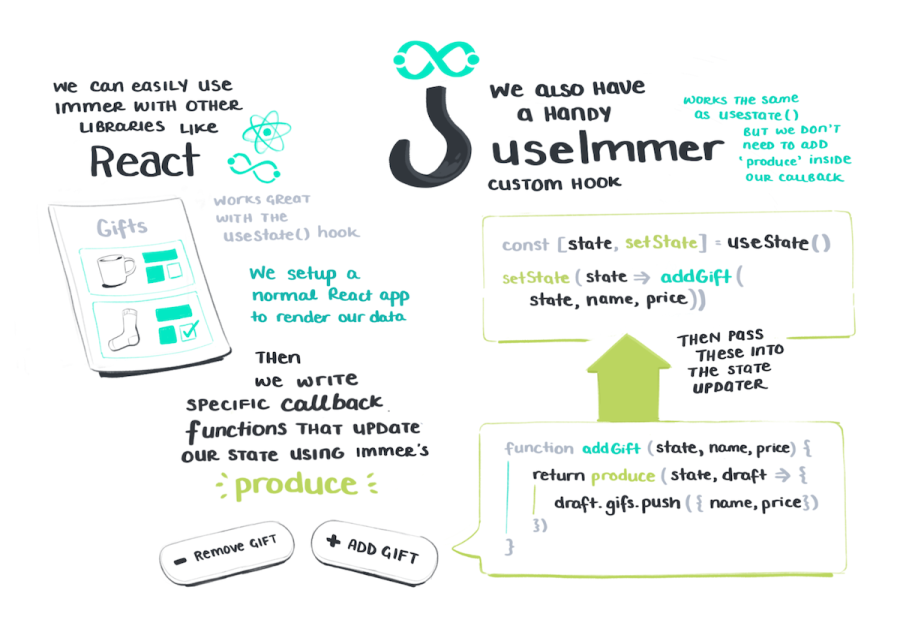 We can easily use
immer with other
libraries like
React
works great
with the
useState() hook
Gifts
We setup a
normal React app
to render our data
Then
we write
specific callback
functions that update
our state using immer's
produce
- Remove Gift
+ Add Gift
We also have
a handy
useImmer
custom hook
works the same
as useState()
but we don't
need to add
'produce' inside
our callback
const [state, setState] = useState()
setState(state => addGift(
state, name, price))
Then pass
these into
the state
updater
function addGift (state, name, price) {
return produce (state, draft => {
draft.gifs.push ({ name, price})
})
}